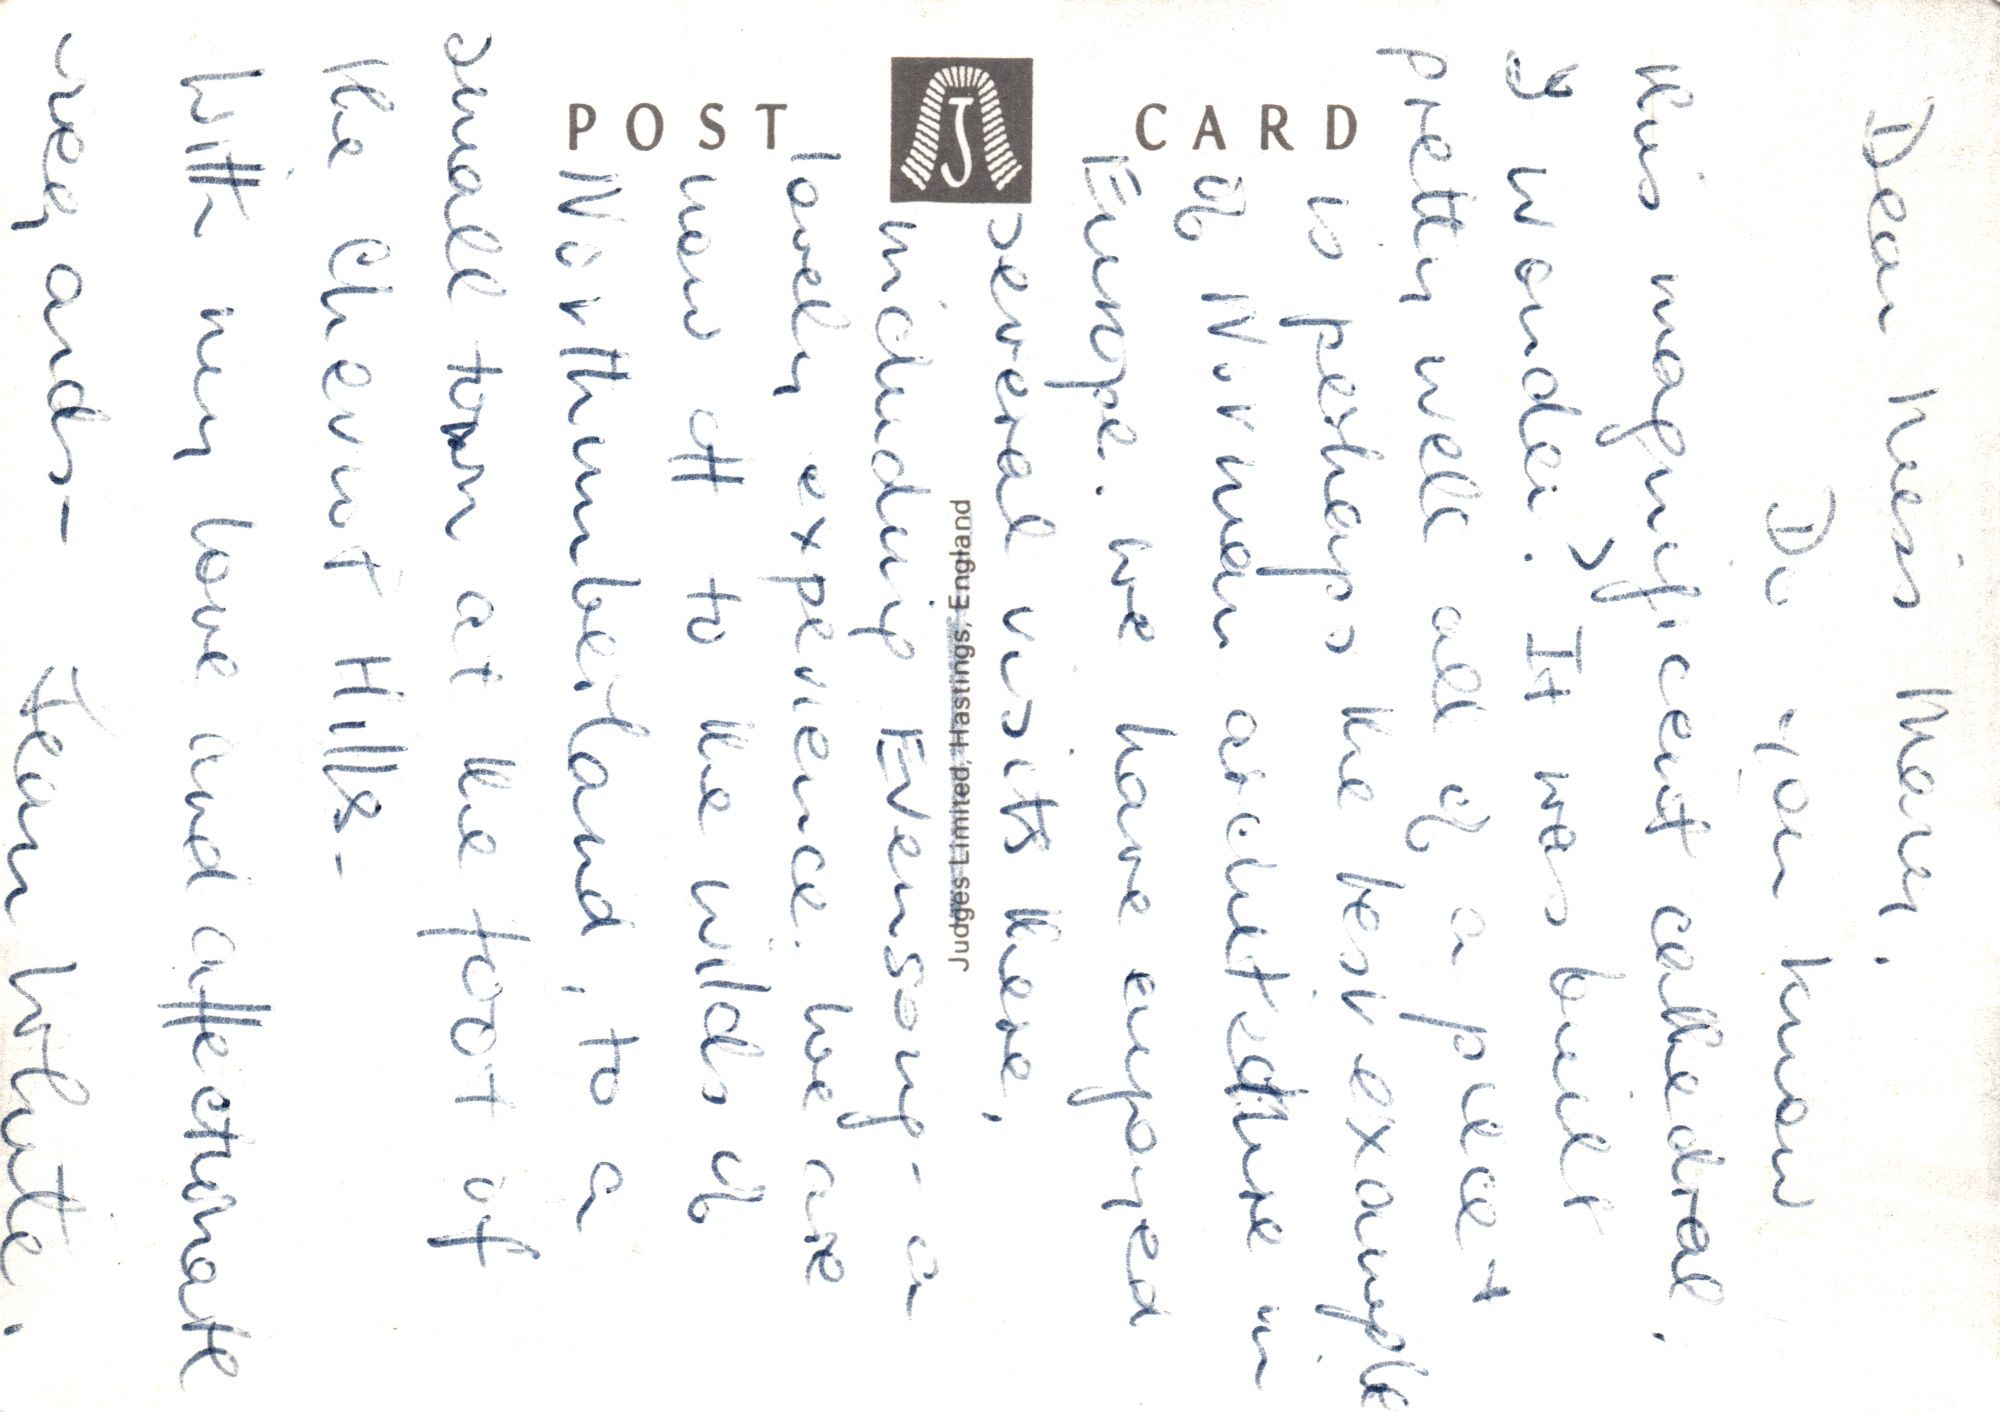 POST CARD
J
Judges Limited, Hastings, England
Dear Miss Mary.
Do you know
this magnificent cathedral,
I wonder. ? It was built
pretty well all of a piece +
is perhaps the best example
of Norman architecture in
Europe. We have enjoyed
several visits there,
including Evensong - a
lovely experience. We are
now off to the wilds of
Northumberland, to a
small town at the foot of
the Cheviot Hills -
With my love and affectionate
regards - Jean White.